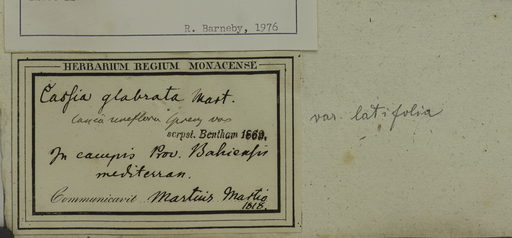 R. Barneby, 1976
HERBARIUM REGIUM MONACENSE
Cassia glabrata Mart.
uniflora Spreng
scrpst. Bentham 1869.
In campis Prov. Bahiensis
mediterran.
Communicavit Martius Martio
1818.
var. latifolia